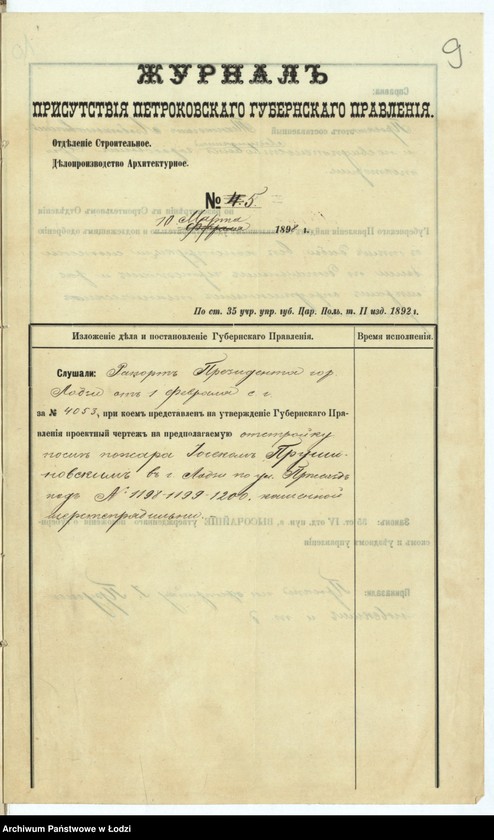 9
ЖУРНАЛЪ
ПРИСУТСТВІЯ ПЕТРОКОВСКАГО ГУБЕРНСКАГО ПРАВЛЕНІЯ.
Отдѣленіе Строительное.
Дѣлопроизводство Архитектурное.
№ 4. 5.
10 Марта
Февраля 1898 г.
По ст. 35 учр. упр. губ. Цар. Поль. т. II изд. 1892 г.
Изложеніе дѣла и постановленіе Губернскаго Правленія.
Время исполненія.
Слушали: Рапортъ Президента гор.
Лодзи отъ 1 февраля с. г.
за № 4053, при коемъ представленъ на утвержденіе Губернскаго Пра-
вленія проектный чертежъ на предполагаемую отстройку
послѣ пожара
въ г. Лодзи по ул.
подъ № 1198-1199-1200. каменной
шерстопрядильни.
Archiwum Państwowe w Łodzi